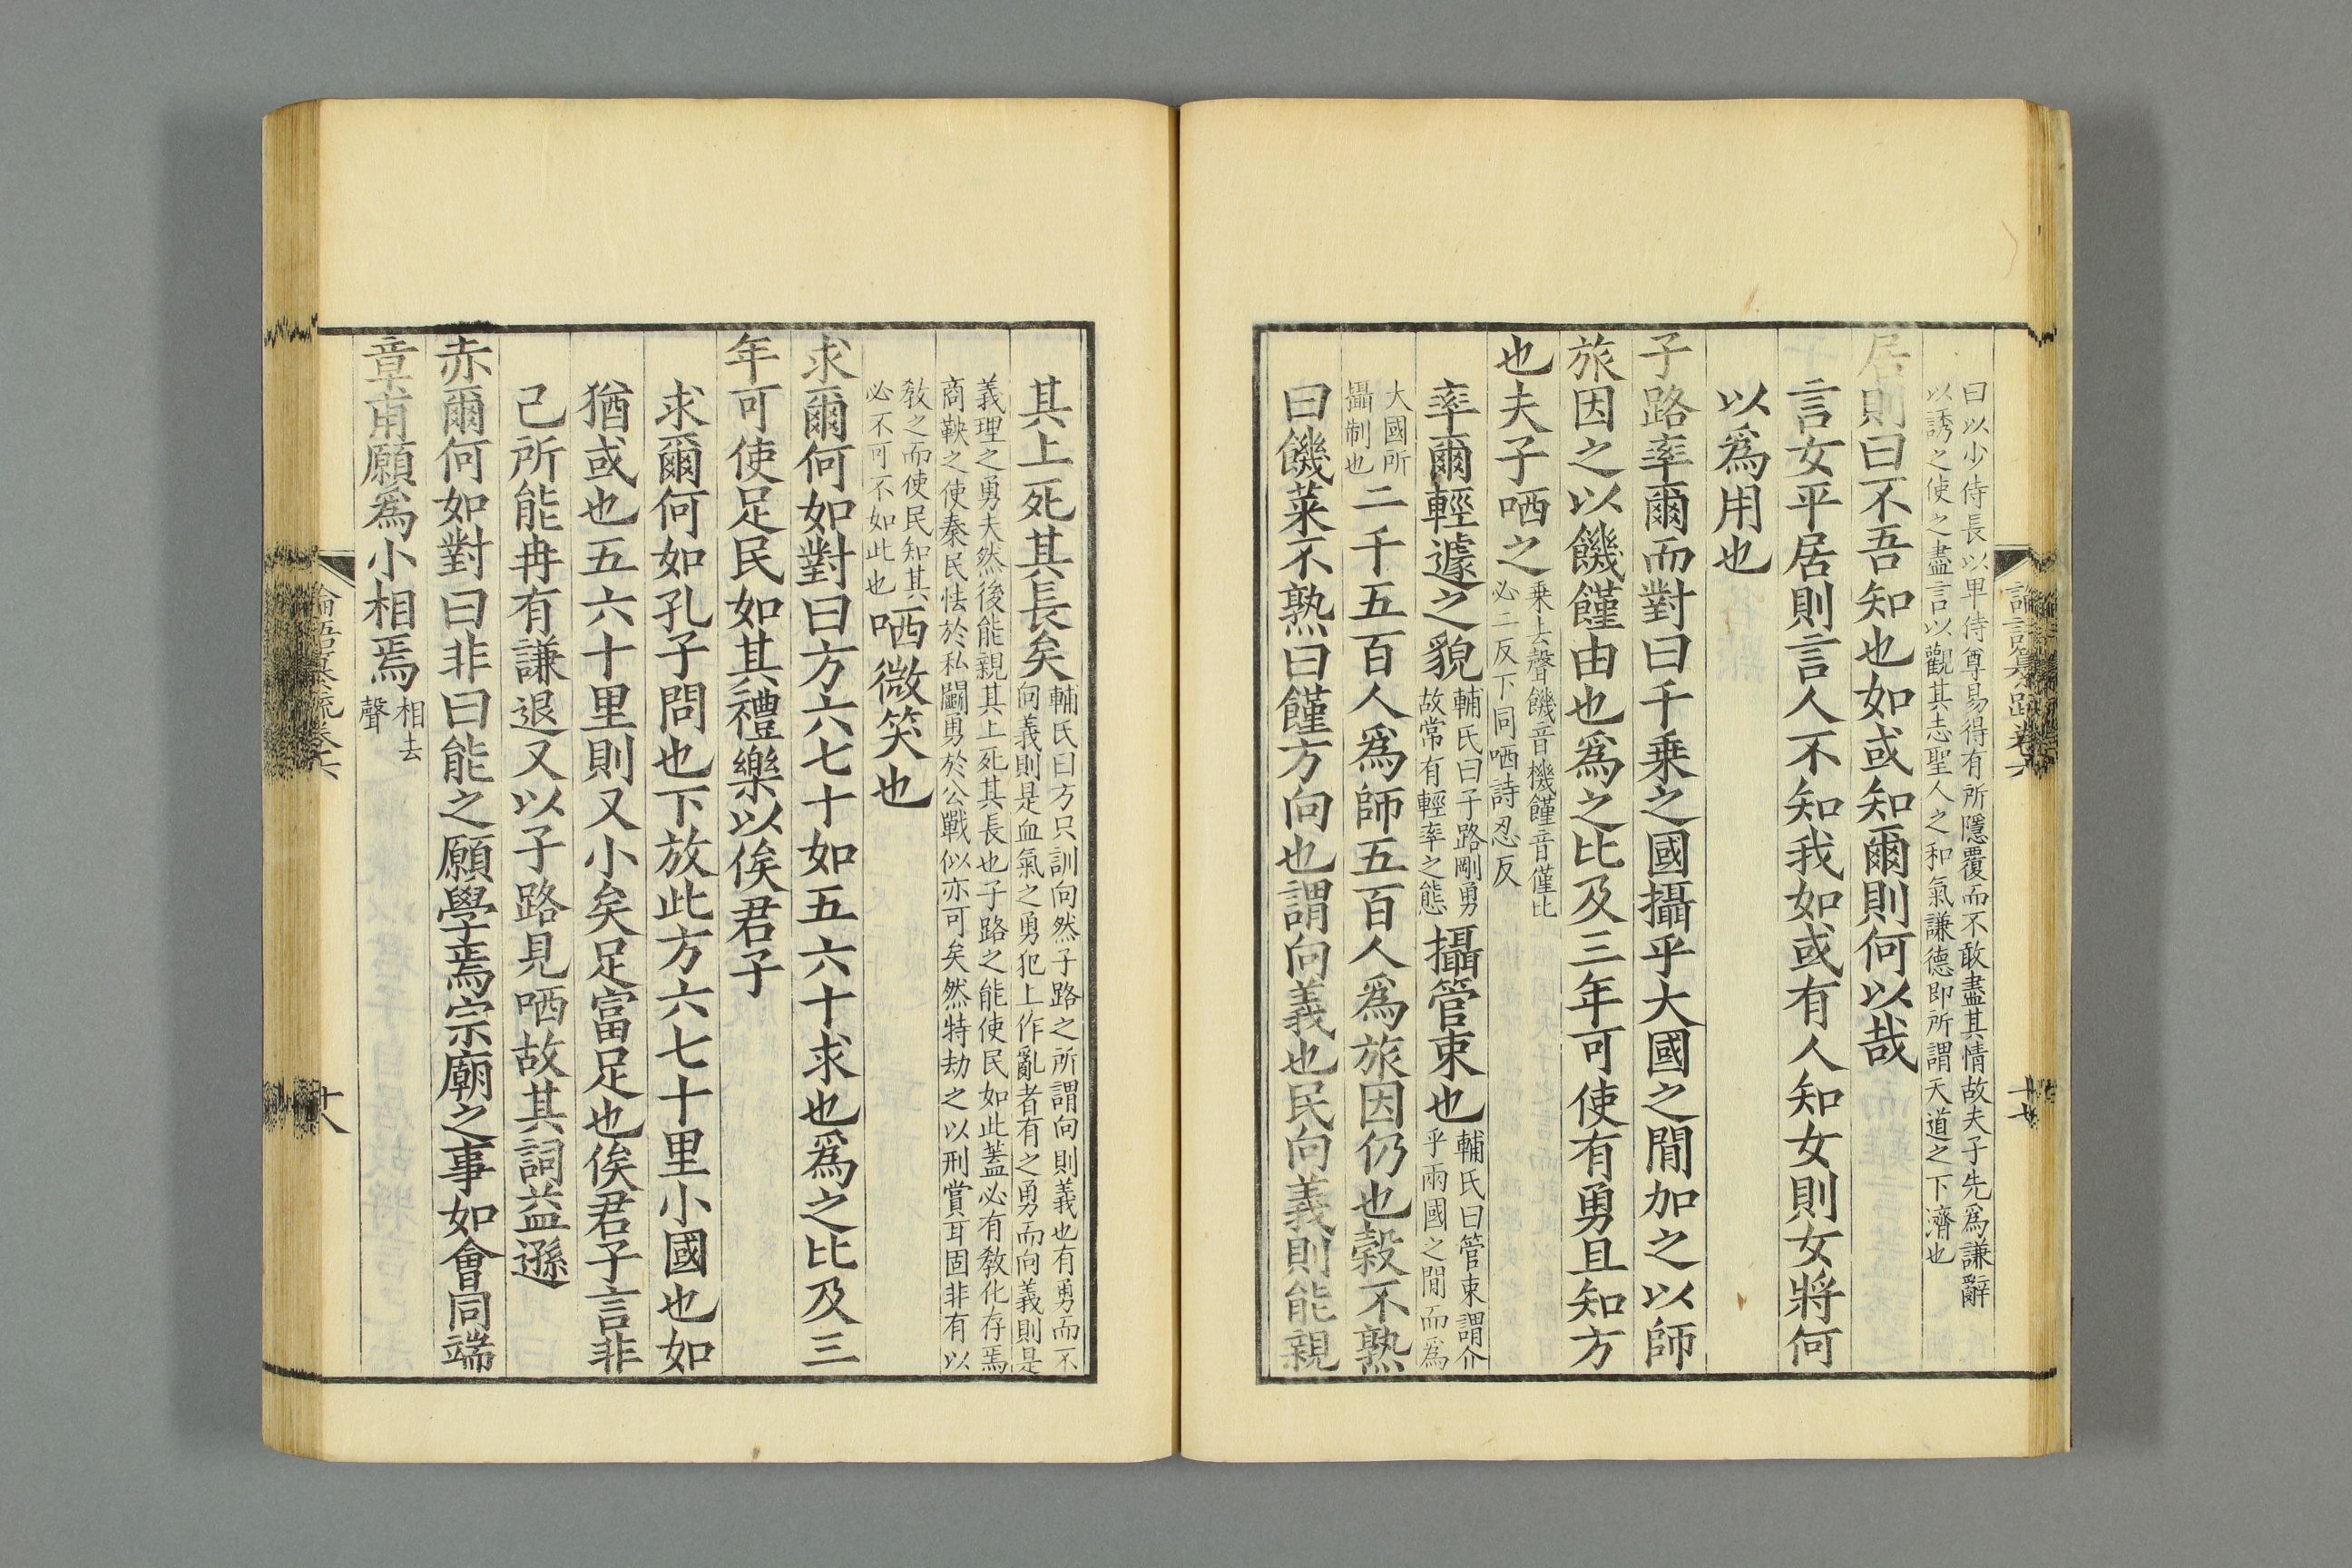 論語纂疏卷六
十七
曰以少侍長以卑侍尊易得有所隱覆而不敢盡其情故夫子先爲謙辭
以誘之使之盡言以觀其志聖人之和氣謙德即所謂天道之下濟也
居則曰不吾知也如或知爾則何以哉
言女平居則言人不知我如或有人知女則女將何
以爲用也
子路率爾而對曰千乗之國攝乎大國之間加之以師
旅因之以饑饉由也爲之比及三年可使有勇且知方
也夫子哂之
乗去聲饑音機饉音僅比
必二反下同哂詩忍反
率爾輕遽之貌
輔氏曰子路剛勇
故常有輕率之態
攝管束也
輔氏曰管束謂介
乎兩國之間而爲
大國所
攝制也
二千五百人爲師五百人爲旅因仍也穀不熟
曰饑菜不熟曰饉方向也謂向義也民向義則能親
其上死其長矣
輔氏曰方只訓向然子路之所謂向則義也有勇而不
向義則是血氣之勇犯上作亂者有之勇而向義則是
義理之勇夫然後能親其上死其長也子路之能使民如此蓋必有敎化存焉
商鞅之使秦民怯於私鬭勇於公戰似亦可矣然特劫之以刑賞耳固非有以
敎之而使民知其
必不可不如此也
哂微笑也
求爾何如對曰方六七十如五六十求也爲之比及三
年可使足民如其禮樂以俟君子
求爾何如孔子問也下放此方六七十里小國也如
猶或也五六十里則又小矣足富足也俟君子言非
己所能冉有謙退又以子路見哂故其詞益遜
赤爾何如對曰非曰能之願學焉宗廟之事如會同端
章甫願爲小相焉
相去
聲
論語纂疏卷六
十八